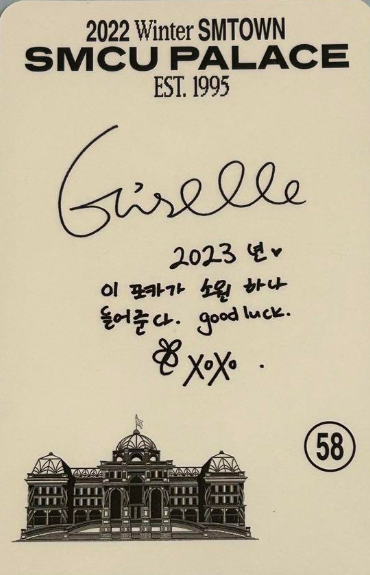 2022 Winter SMTOWN
SMCU PALACE
EST. 1995
Giselle
2023 년♥
이 포카가 소원 하나
들어준다. good luck.
XoXo.
58